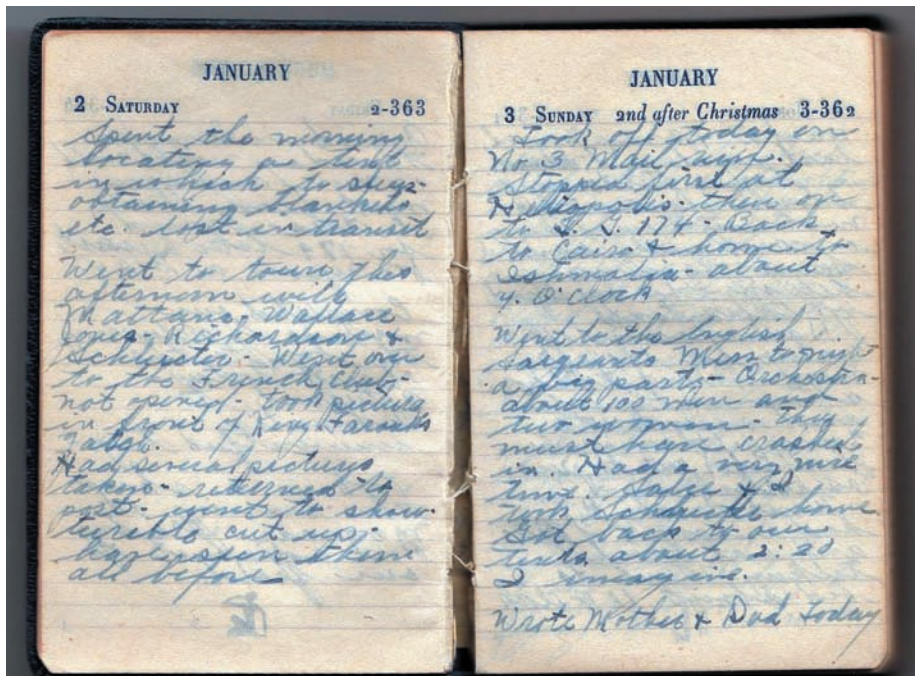 JANUARY
2 SATURDAY 2-363
Spent the morning
locating a tent
in which to sleep-
obtaining blankets
etc. lost in transit
Went to town this
afternoon with
Mattana- Wallace
Jones- Richardson &
Schuster- Went over
to the French Club-
not opened- took picture
in front of King Farouk's
Had several pictures
taken- returned to
post- went to show-
turible cut up-
have seen them
all before
JANUARY
3 SUNDAY 2nd after Christmas 3-362
Took off today on
No 3 Mail run.
Stopped first at
Heliopolis- then on
to L. G. 174- Back
to Cairo & home to
Ishmalia- about
4. O'Clock
Went to the English
Sargeants Mess tonight
a big party- Orchestra-
about 100 men and
two women- they
must have crashed
in. Had a very nice
time. & I
took home.
Got back to our
tents about 2:20
I imagine.
Wrote Mother & Dad Today